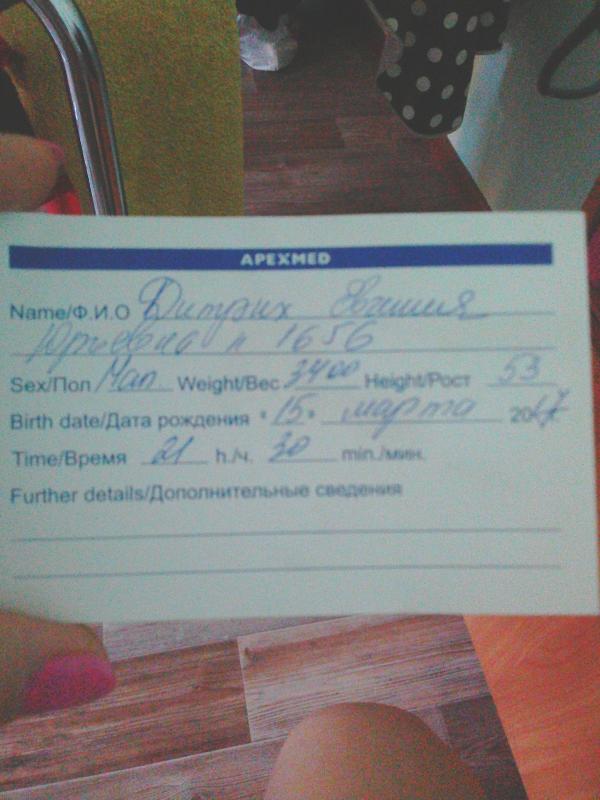 APEXMED
Name/Ф.И.О Дитрих Евгения
Юрьевна 1656
Sex/Пол Мал. Weight/Вес 3400 Height/Рост 53
Birth date/Дата рождения "15" марта 2017
Time/Время 21 h./ч. 30 min./мин.
Further details/Дополнительные сведения